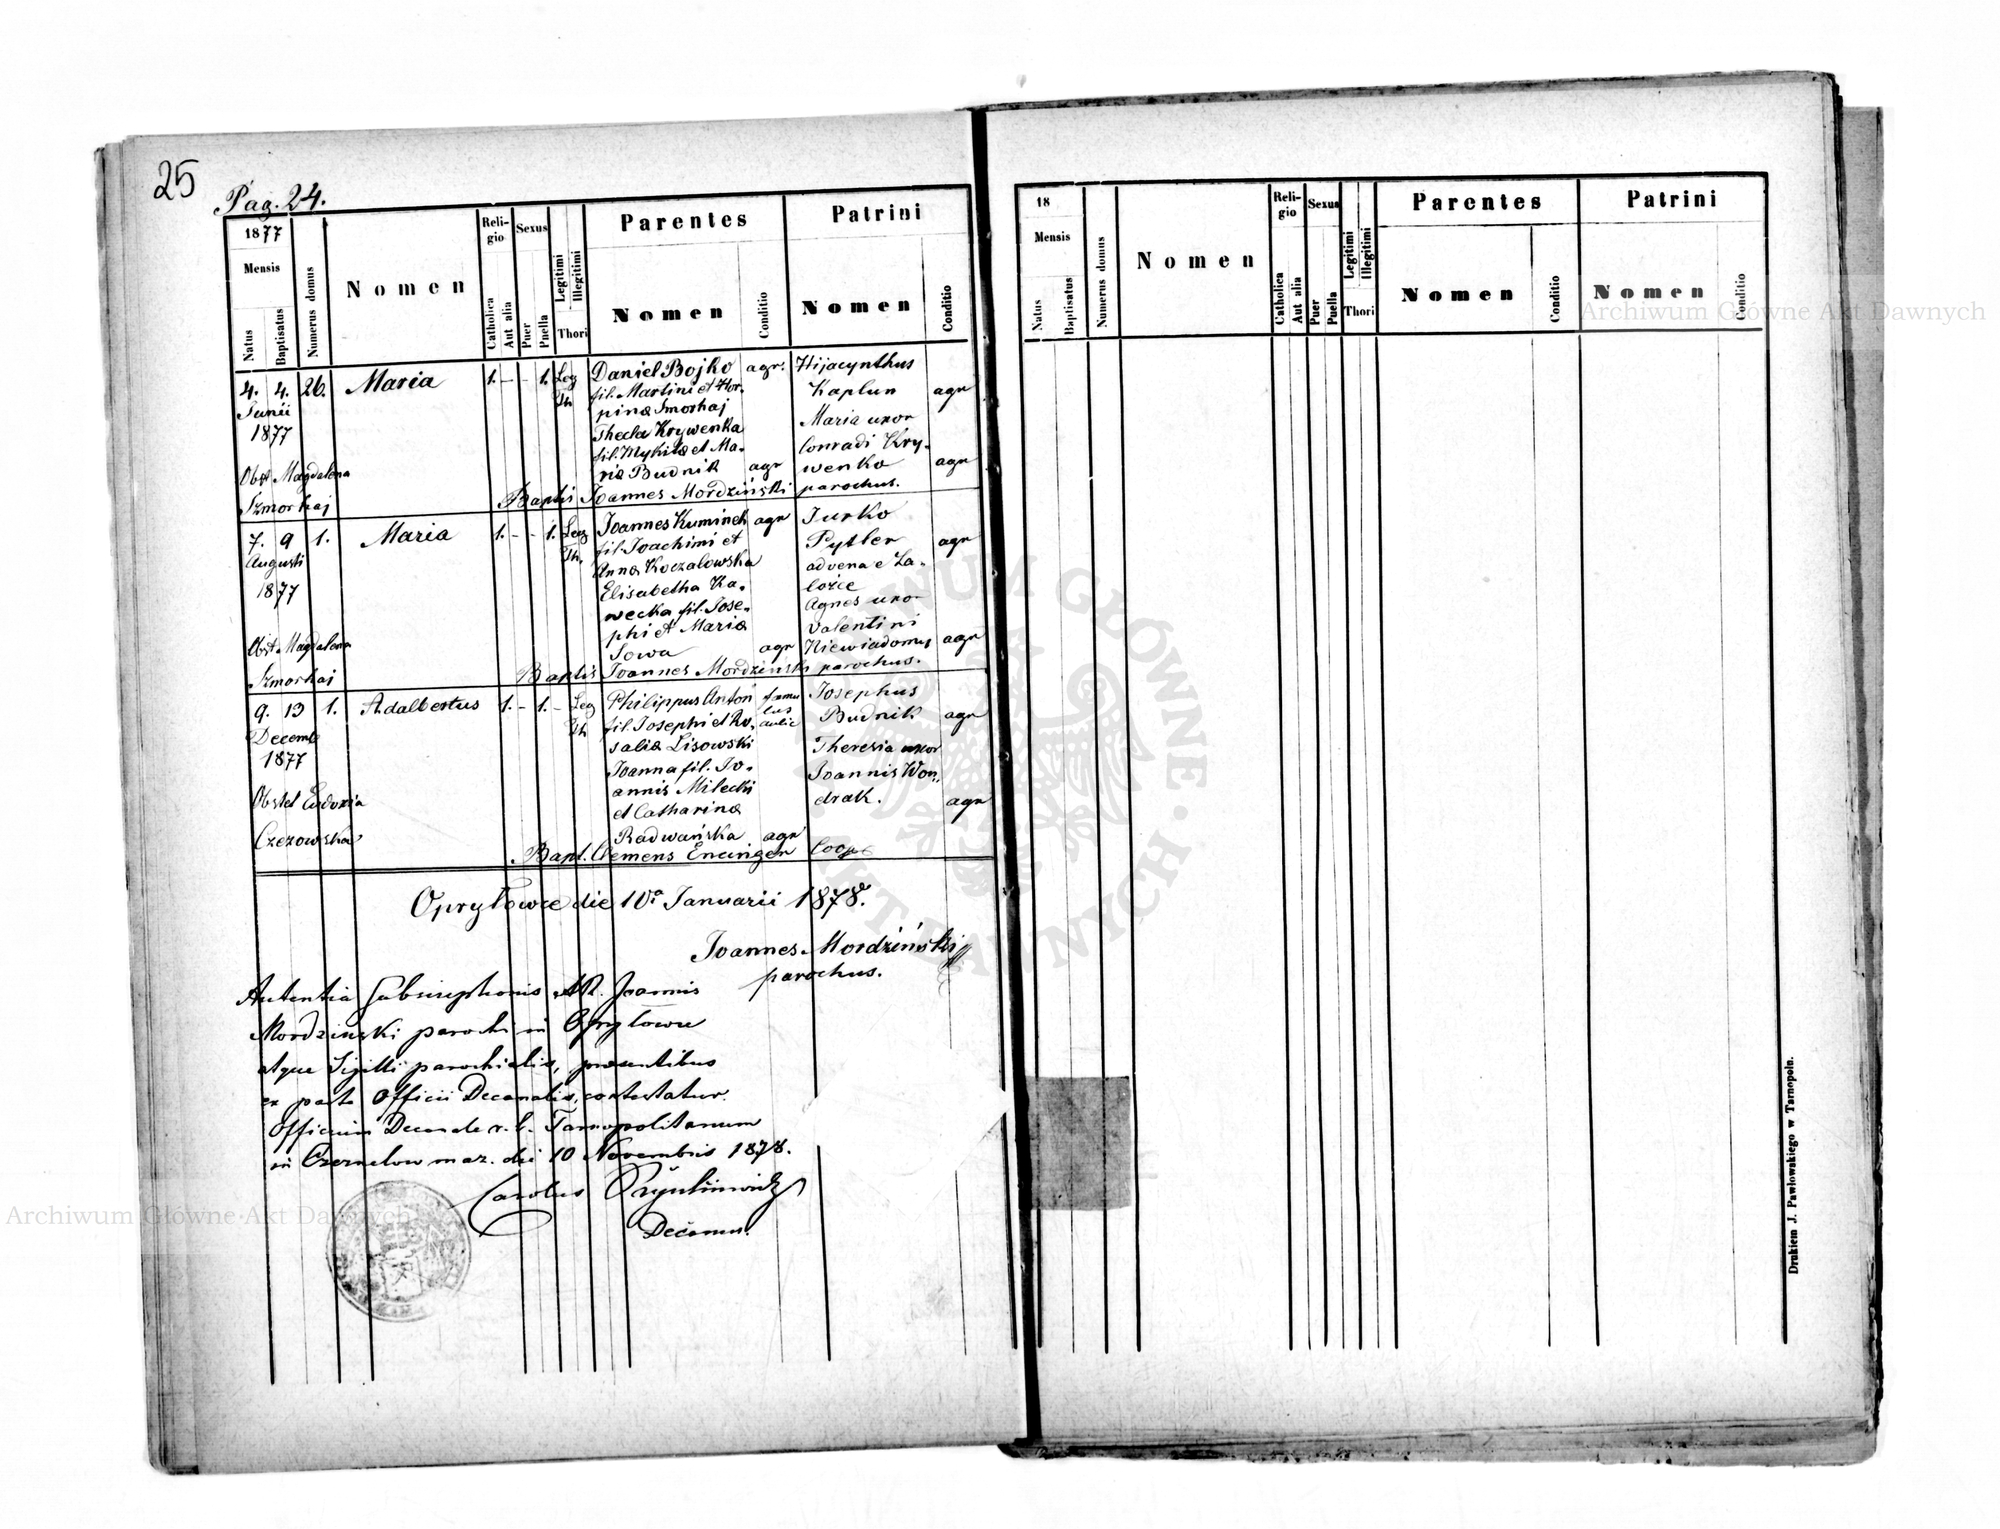 25
Pag. 24.
1877
Mensis
Natus
Baptisatus
Numerus domus
Nomen
Religio
Catholica
Aut alia
Sexus
Puer
Puella
Legitimi
Illegitimi
Thori
Parentes
Nomen
Conditio
Patrini
Nomen
Conditio
4. 4. 26. Maria 1. - - 1. Leg Daniel Bojko agr. Hijacynthus
Th. fil. Martini et Hor- Kaplun agr
Junii pinæ Smorhaj
1877 Thecla Krywenka Maria uxor
fil. Mykitæ et Ma- Conradi Kry-
Obst Magdalena riæ Budnik agr wenko agr
Szmorhaj Baptis Joannes Mordziński parochus.
7. 9 1. Maria 1. - - 1. Leg Joannes Kuminek agr Jurko
Augusti Th. fil. Joachimi et Pytler agr
Annæ Koczalowska advena e Za-
1877 Elisabetha Ka- lozce
wecka fil. Jose- Agnes uxor
phi et Mariæ Valentini
Obst. Magdalena Sowa agr Niewiadomy agr
Szmorhaj Baptis Joannes Mordziński parochus.
9. 13 1. Adalbertus 1. - 1. - Leg Philippus Anton famulus aulic Josephus
Decemb Th fil. Josephi et Ro- Budnik agr
1877 saliæ Lisowski Theresia uxor
Joanna fil. Jo- Joannis Won-
Obstet Eudoxia annis Milecki drak. agr
et Catharinæ
Czezowska Radwańska agr
Bapt. Clemens Encinger Coop
Opryłowce die 10a Januarii 1878.
Joannes Mordziński
parochus.
Autentia Subscriptionis AR. Joannis
Mordzinski parochi in Opryłowce
atque Sigilli parochialis, præsentibus
ex parte Officii Decanalis, contestatur.
Officium Decanale r. l. Tarnopolitanum
in Czernelow maz. die 10 Novembris 1878.
Carolus
Decanus.
18
Mensis
Natus
Baptisatus
Numerus domus
Nomen
Religio
Catholica
Aut alia
Sexus
Puer
Puella
Legitimi
Illegitimi
Thori
Parentes
Nomen
Conditio
Patrini
Nomen
Conditio
Drukiem J. Pawłowskiego w Tarnopolu.
Archiwum Główne Akt Dawnych
Archiwum Główne Akt Dawnych
ARCHIWUM GŁÓWNE · AKT DAWNYCH ·